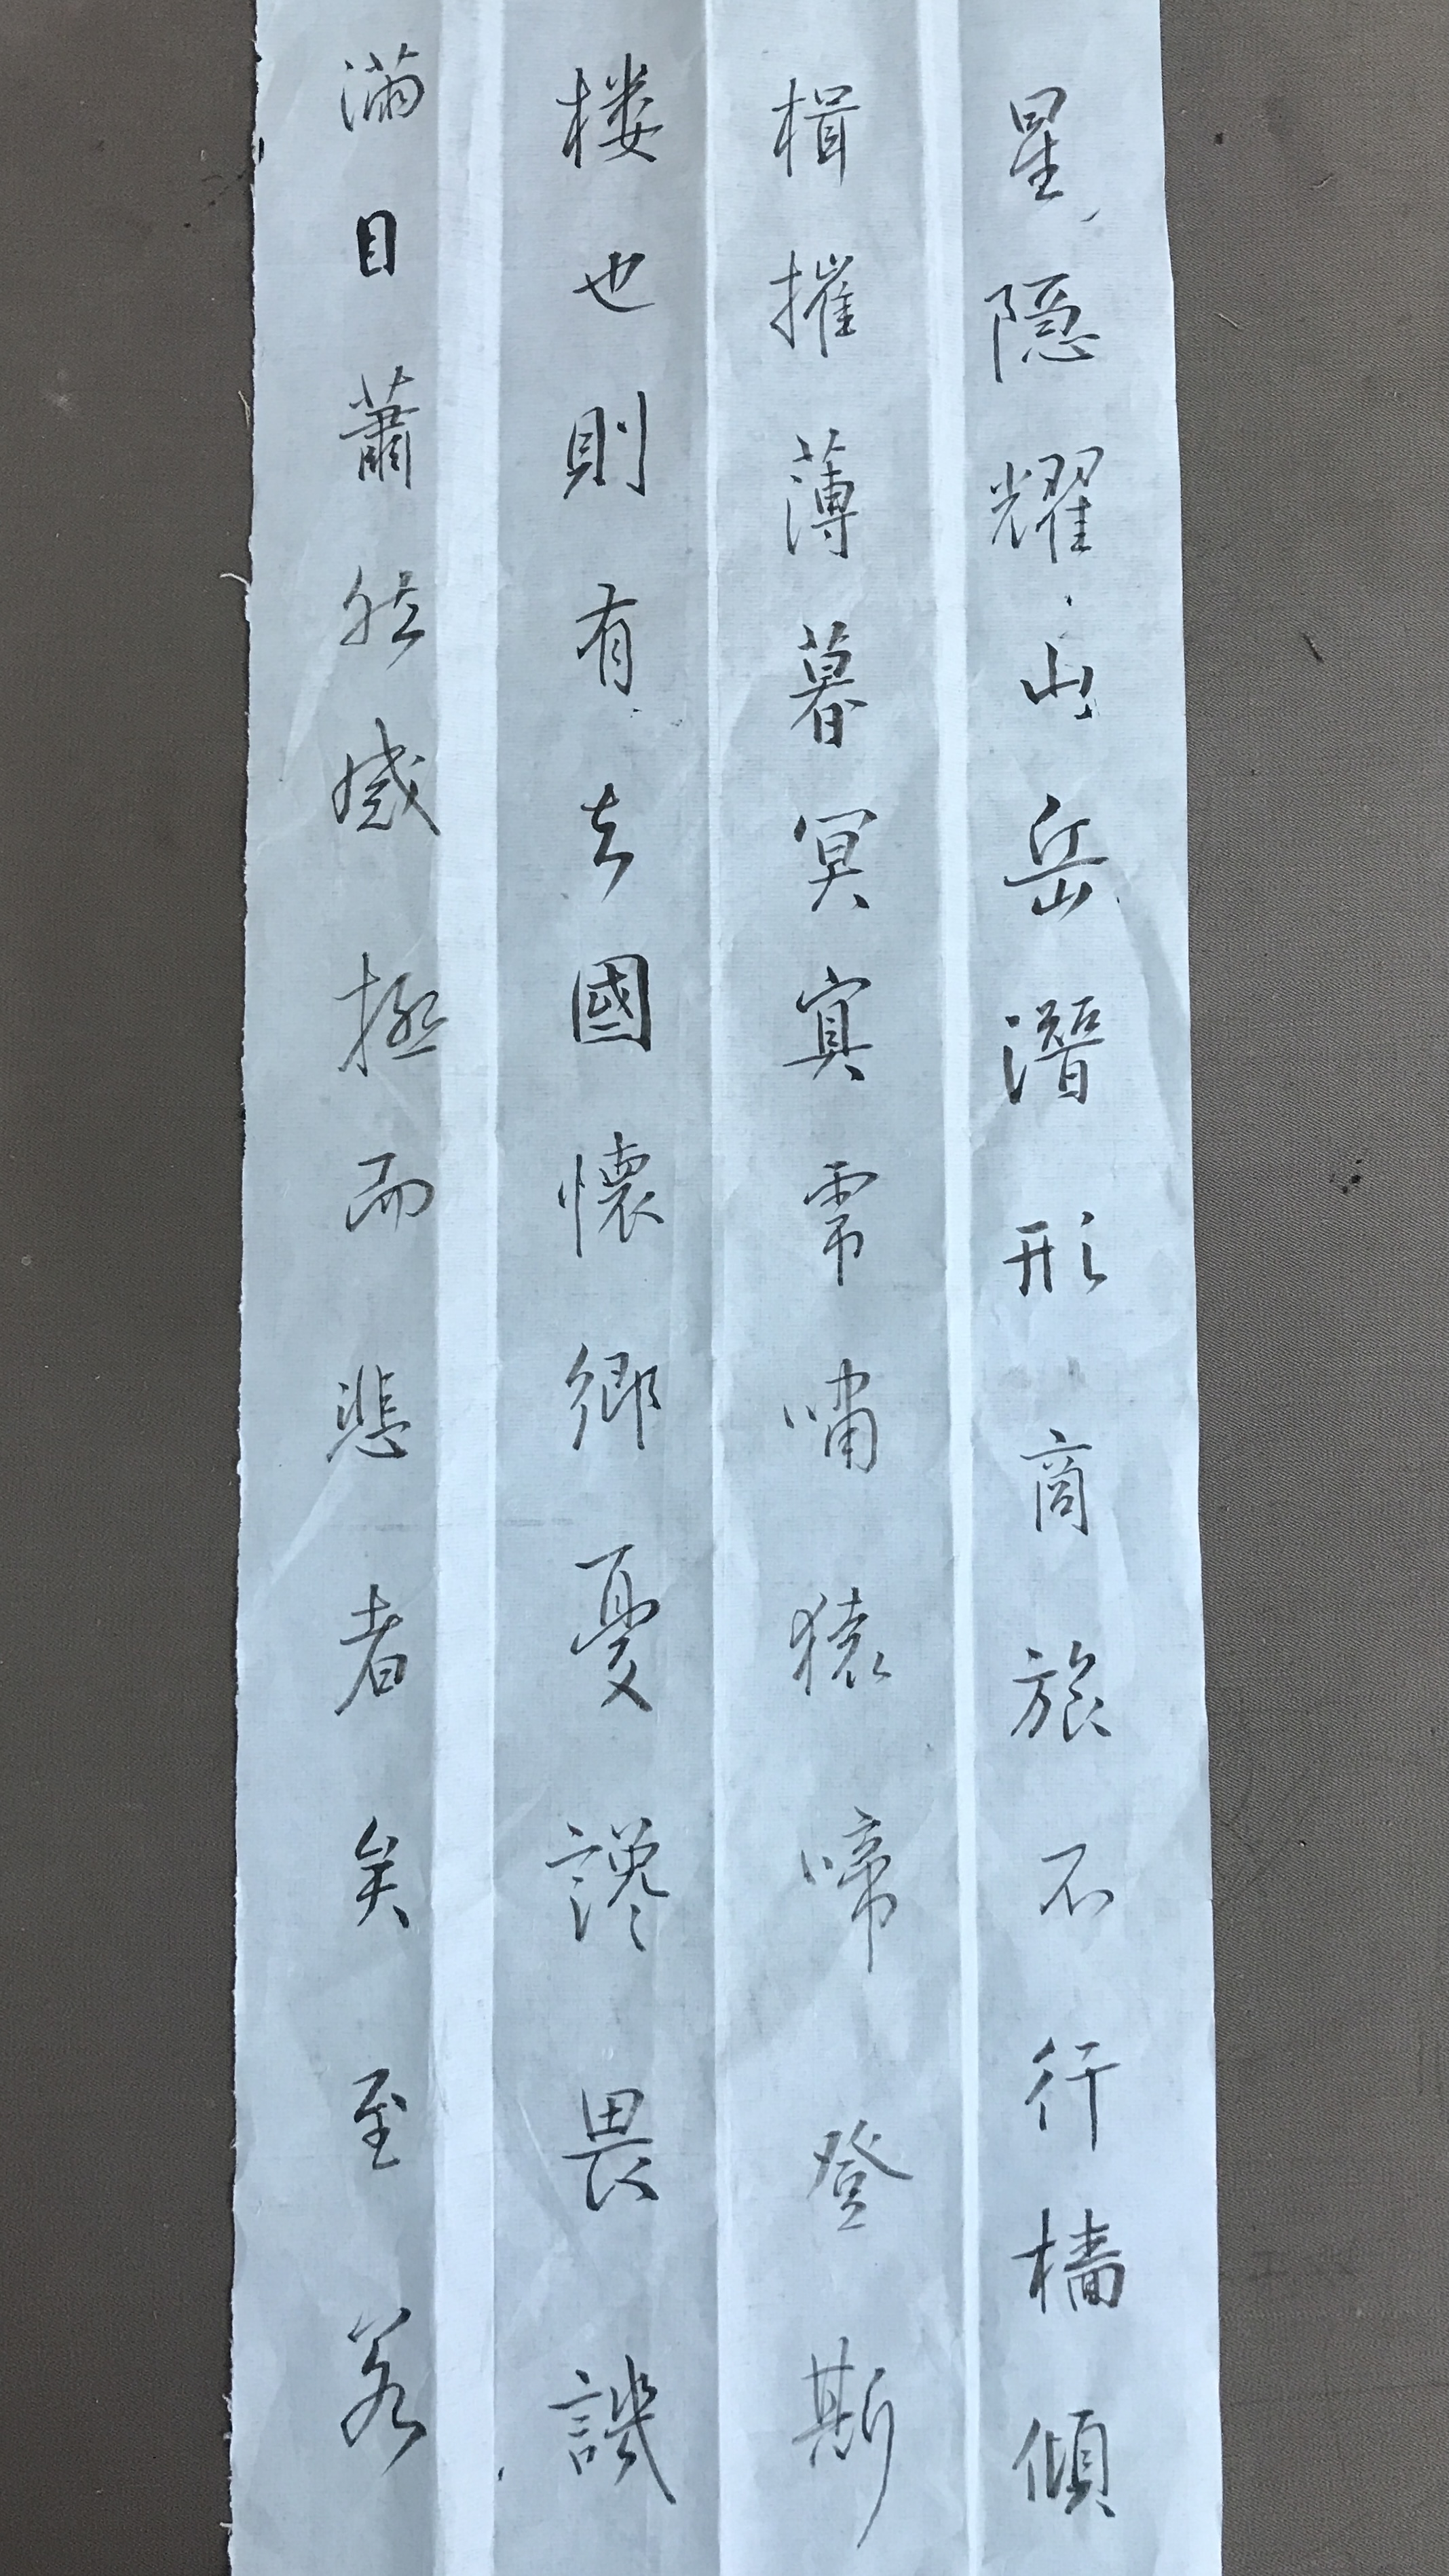 星隐耀山岳潛形商旅不行檣傾
楫摧薄暮冥冥虎嘯猿啼登斯
楼也則有去國懷鄉憂讒畏譏
滿目蕭然感極而悲者矣至若